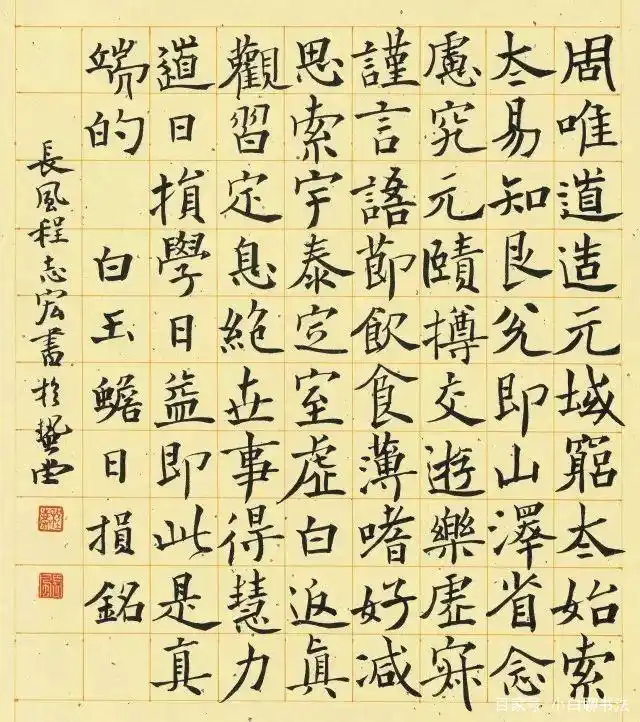 周唯道造元域窮夳始索
夳易知艮兌即山澤省念
慮究元賾撙交遊樂虛寂
謹言語節飲食薄嗜好減
思索宇泰定室虛白返眞
觀習定息絕世事得慧力
道日損學日益即此是真
端的 白玉蟾日損銘
長風程志宏書於
百家号/小白聊书法